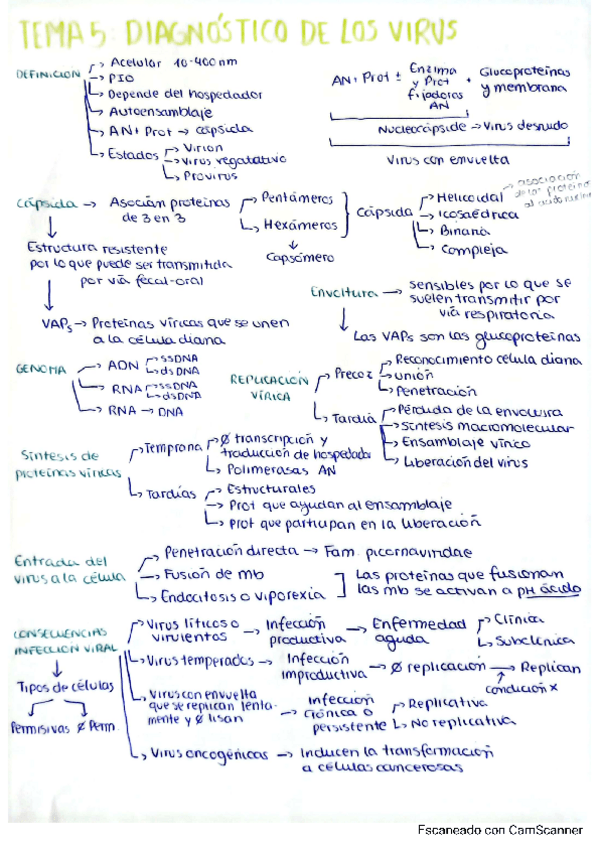 TEMA 5: DIAGNÓSTICO DE LOS VIRUS
DEFINICION
Acelular 10-400nm
PIO
Depende del hospedador
Autoensamblaje
AN + Prot → cápsida
Estados
Virion
Virus vegatativo
Provirus
AN + Prot ± Enzima y Prot fijadoras AN + Glucoproteínas y membrana
Nucleocápside → Virus desnudo
Virus con envuelta
Cápsida → Asocian proteínas de 3 en 3
Pentámeros
Hexámeros
Capsómero
Cápsida
Helicoidal → asociación de las proteínas al acido nucleico
Icosaédrica
Binaria
Compleja
Estructura resistente
por lo que puede ser transmitida
por vía fecal-oral
VAPs → Proteínas víricas que se unen
a la célula diana
Envoltura → sensibles por lo que se
suelen transmitir por
vía respiratoria
Las VAPs son las glucoproteínas
GENOMA
ADN
ssDNA
dsDNA
RNA
ssDNA
dsDNA
RNA → DNA
REPLICACIÓN
VÍRICA
Precoz
Reconocimiento célula diana
Unión
Penetración
Tardia
Pérdida de la envoltura
Síntesis macromolecular
Ensamblaje vírico
Liberación del virus
Síntesis de
proteínas víricas
Temprona
Ø transcripción y
traducción de hospedador
Polimerasas AN
Tardías
Estructurales
Prot que ayudan al ensamblaje
Prot que participan en la liberación
Entrada del
virus a la célula
Penetración directa → Fam. picornaviridae
Fusión de mb
Endocitosis o viporexia
Las proteínas que fusionan
las mb se activan a pH ácido
CONSECUENCIAS
INFECCION VIRAL
Tipos de células
Permisivas Ø Perm.
Virus líticos o
virulentos → Infección
productiva → Enfermedad
aguda
Clínica
Subclínica
Virus temperados → Infección
improductiva → Ø replicación → Replican
condición x
Virus con envuelta
que se replican lenta-
mente y Ø lisan → Infección
crónica o
persistente
Replicativa
No replicativa
Virus oncogénicos → Inducen la transformación
a células cancerosas
Escaneado con CamScanner